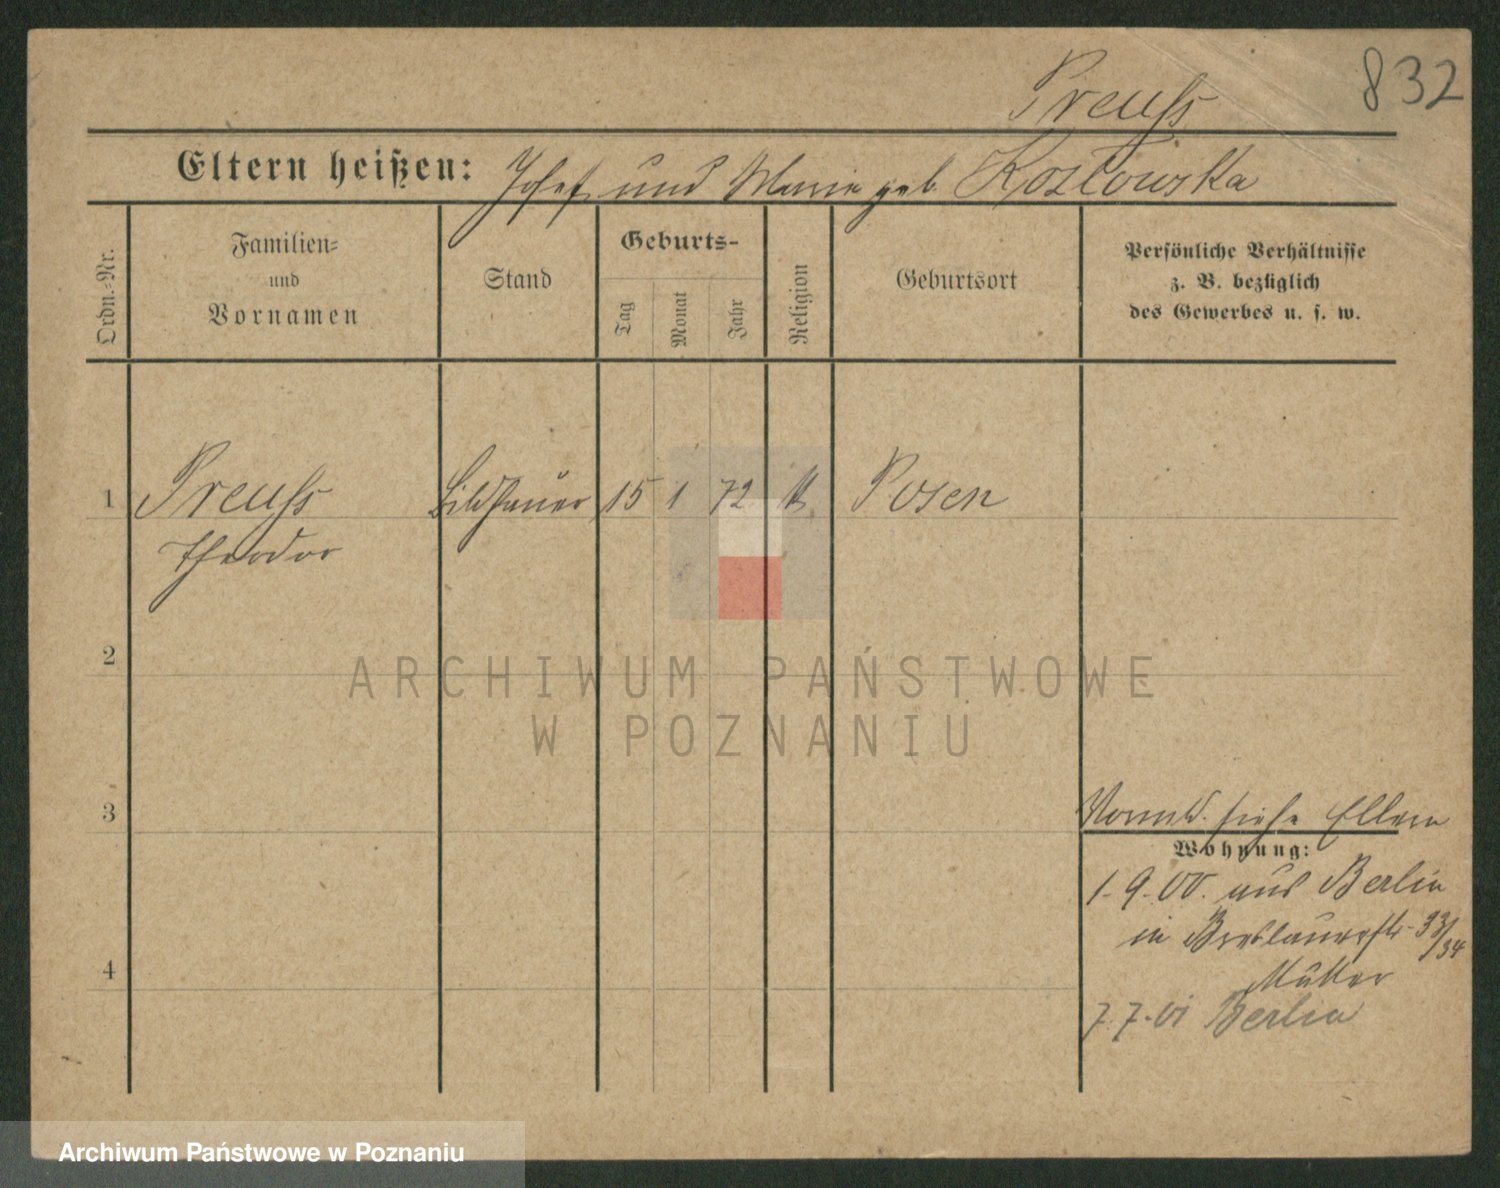 832
Preuß
Eltern heißen: Josef und Maria geb. Kozłowska
Ordn.-Nr.
Familien-
und
Vornamen
Stand
Geburts-
Tag
Monat
Jahr
Religion
Geburtsort
Persönliche Verhältnisse
z. B. bezüglich
des Gewerbes u. s. w.
1 Preuß Bildhauer 15 1 72 k Posen
Theodor
2
ARCHIWUM PAŃSTWOWE
W POZNANIU
3
siehe Eltern
Wohnung:
1.9.00. aus Berlin
in Breslauerstr. 33/34
4
Mutter
7.7.01 Berlin
Archiwum Państwowe w Poznaniu